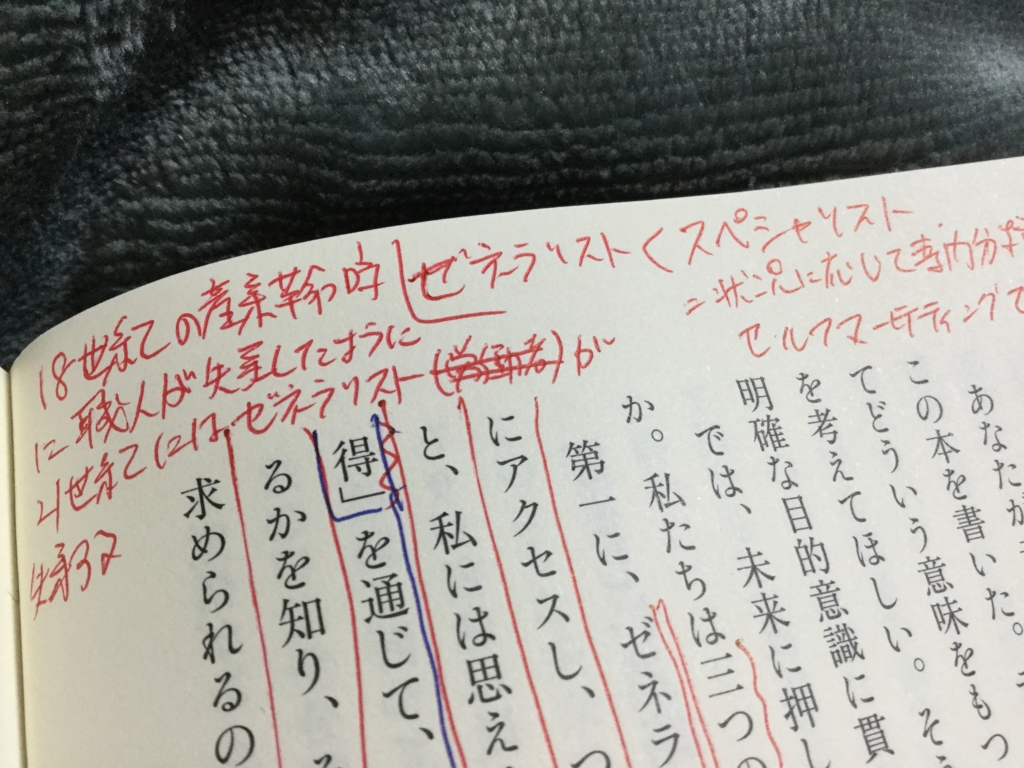 18世紀の産業革命時
に職人が失業したように
21世紀には、ゼネラリスト(労働者)が
失業する
ゼネラリスト<スペシャリスト
=状況に応じて専門分野
セルフマーケティングで
あなたが
この本を書いた。
てどういう意味をもつ
を考えてほしい。そう
明確な目的意識に貫
では、未来に押し
か。私たちは三つの
第一に、ゼネラ
にアクセスし、つ
と、私には思え
得」を通じて、
るかを知り、
求められるの